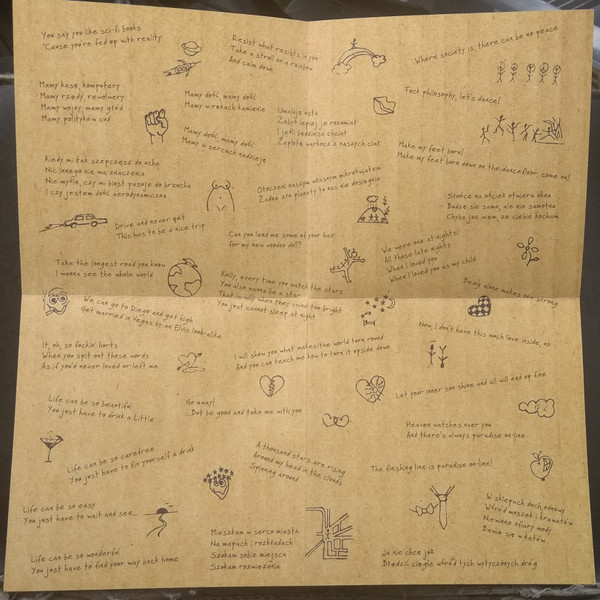 You say you like sci-fi books
'Cause you're fed up with reality
Resist what resists in you
Take a stroll on a rainbow
And calm down
Where society is, there can be no peace
Mamy kasę, komputery
Mamy rządy, rewolwery
Mamy wojny, mamy głód
Mamy polityków sąd
Mamy dość, mamy dość
Mamy w rękach kamienie
Mamy dość, mamy dość
Mamy w sercach nadzieję
Umaluję usta
Żebyś lepiej je rozumiał
I jeśli będziesz chciał
Zaplotę warkocz z naszych ciał
Fuck philosophy, let's dance!
Make my feet burn!
Make my feet burn down on the dancefloor, come on!
Kiedy mi tak szepczesz do ucha
Nic innego nie ma znaczenia
Nie myślę, czy mi biust pasuje do brzucha
I czy jestem dość aerodynamiczna
Otoczeni naszym własnym mikroklimatem
Żadna sto planety tu nas nie dosięgnie
Słońce na oścież otwiera okna
Budzę się sama, ale nie samotna
Chyba już wiem, że ciebie kocham
Drive and never quit
This has to be a nice trip
Can you lend me some of your hair
for my new voodoo doll?
We were one at nights
All those late nights
When I loved you
When I loved you as my child
Take the longest road you know
I wanna see the whole world
Kelly, every time you watch the stars
You also wanna be a star
That is why when they shine too bright
You just cannot sleep at night
Being alone makes one strong
We can go to Diego and get high
Get married in Vegas by an Elvis look-alike
Now, I don't have this much love inside, no
It, oh, so fuckin' hurts
When you spit out those words
As if you'd never loved or left me
I will show you what makes the world turn round
And you can teach me how to turn it upside down
Let your inner sun shine and all will end up fine
Life can be so beautiful
You just have to drink a little
Go away!
But be good and take me with you
Heaven watches over you
And there's always paradise on-line
Life can be so carefree
You just have to fix yourself a drink
A thousand stars are rising
Around my head in the clouds
Spinning around
The finishing line is paradise on-line!
Life can be so easy
You just have to wait and see...
Mieszkam w sercu miasta
Na mapach i rozkładach
Szukam sobie miejsca
Szukam rozwiązania
W sklepach
Wśród muszek i krawatów
Niewinne ofiary mody
Bawią się w katów
Life can be so wonderful
You just have to find your way back home
Ja nie chcę już
Błądzić ciągle wśród tych wytyczonych dróg